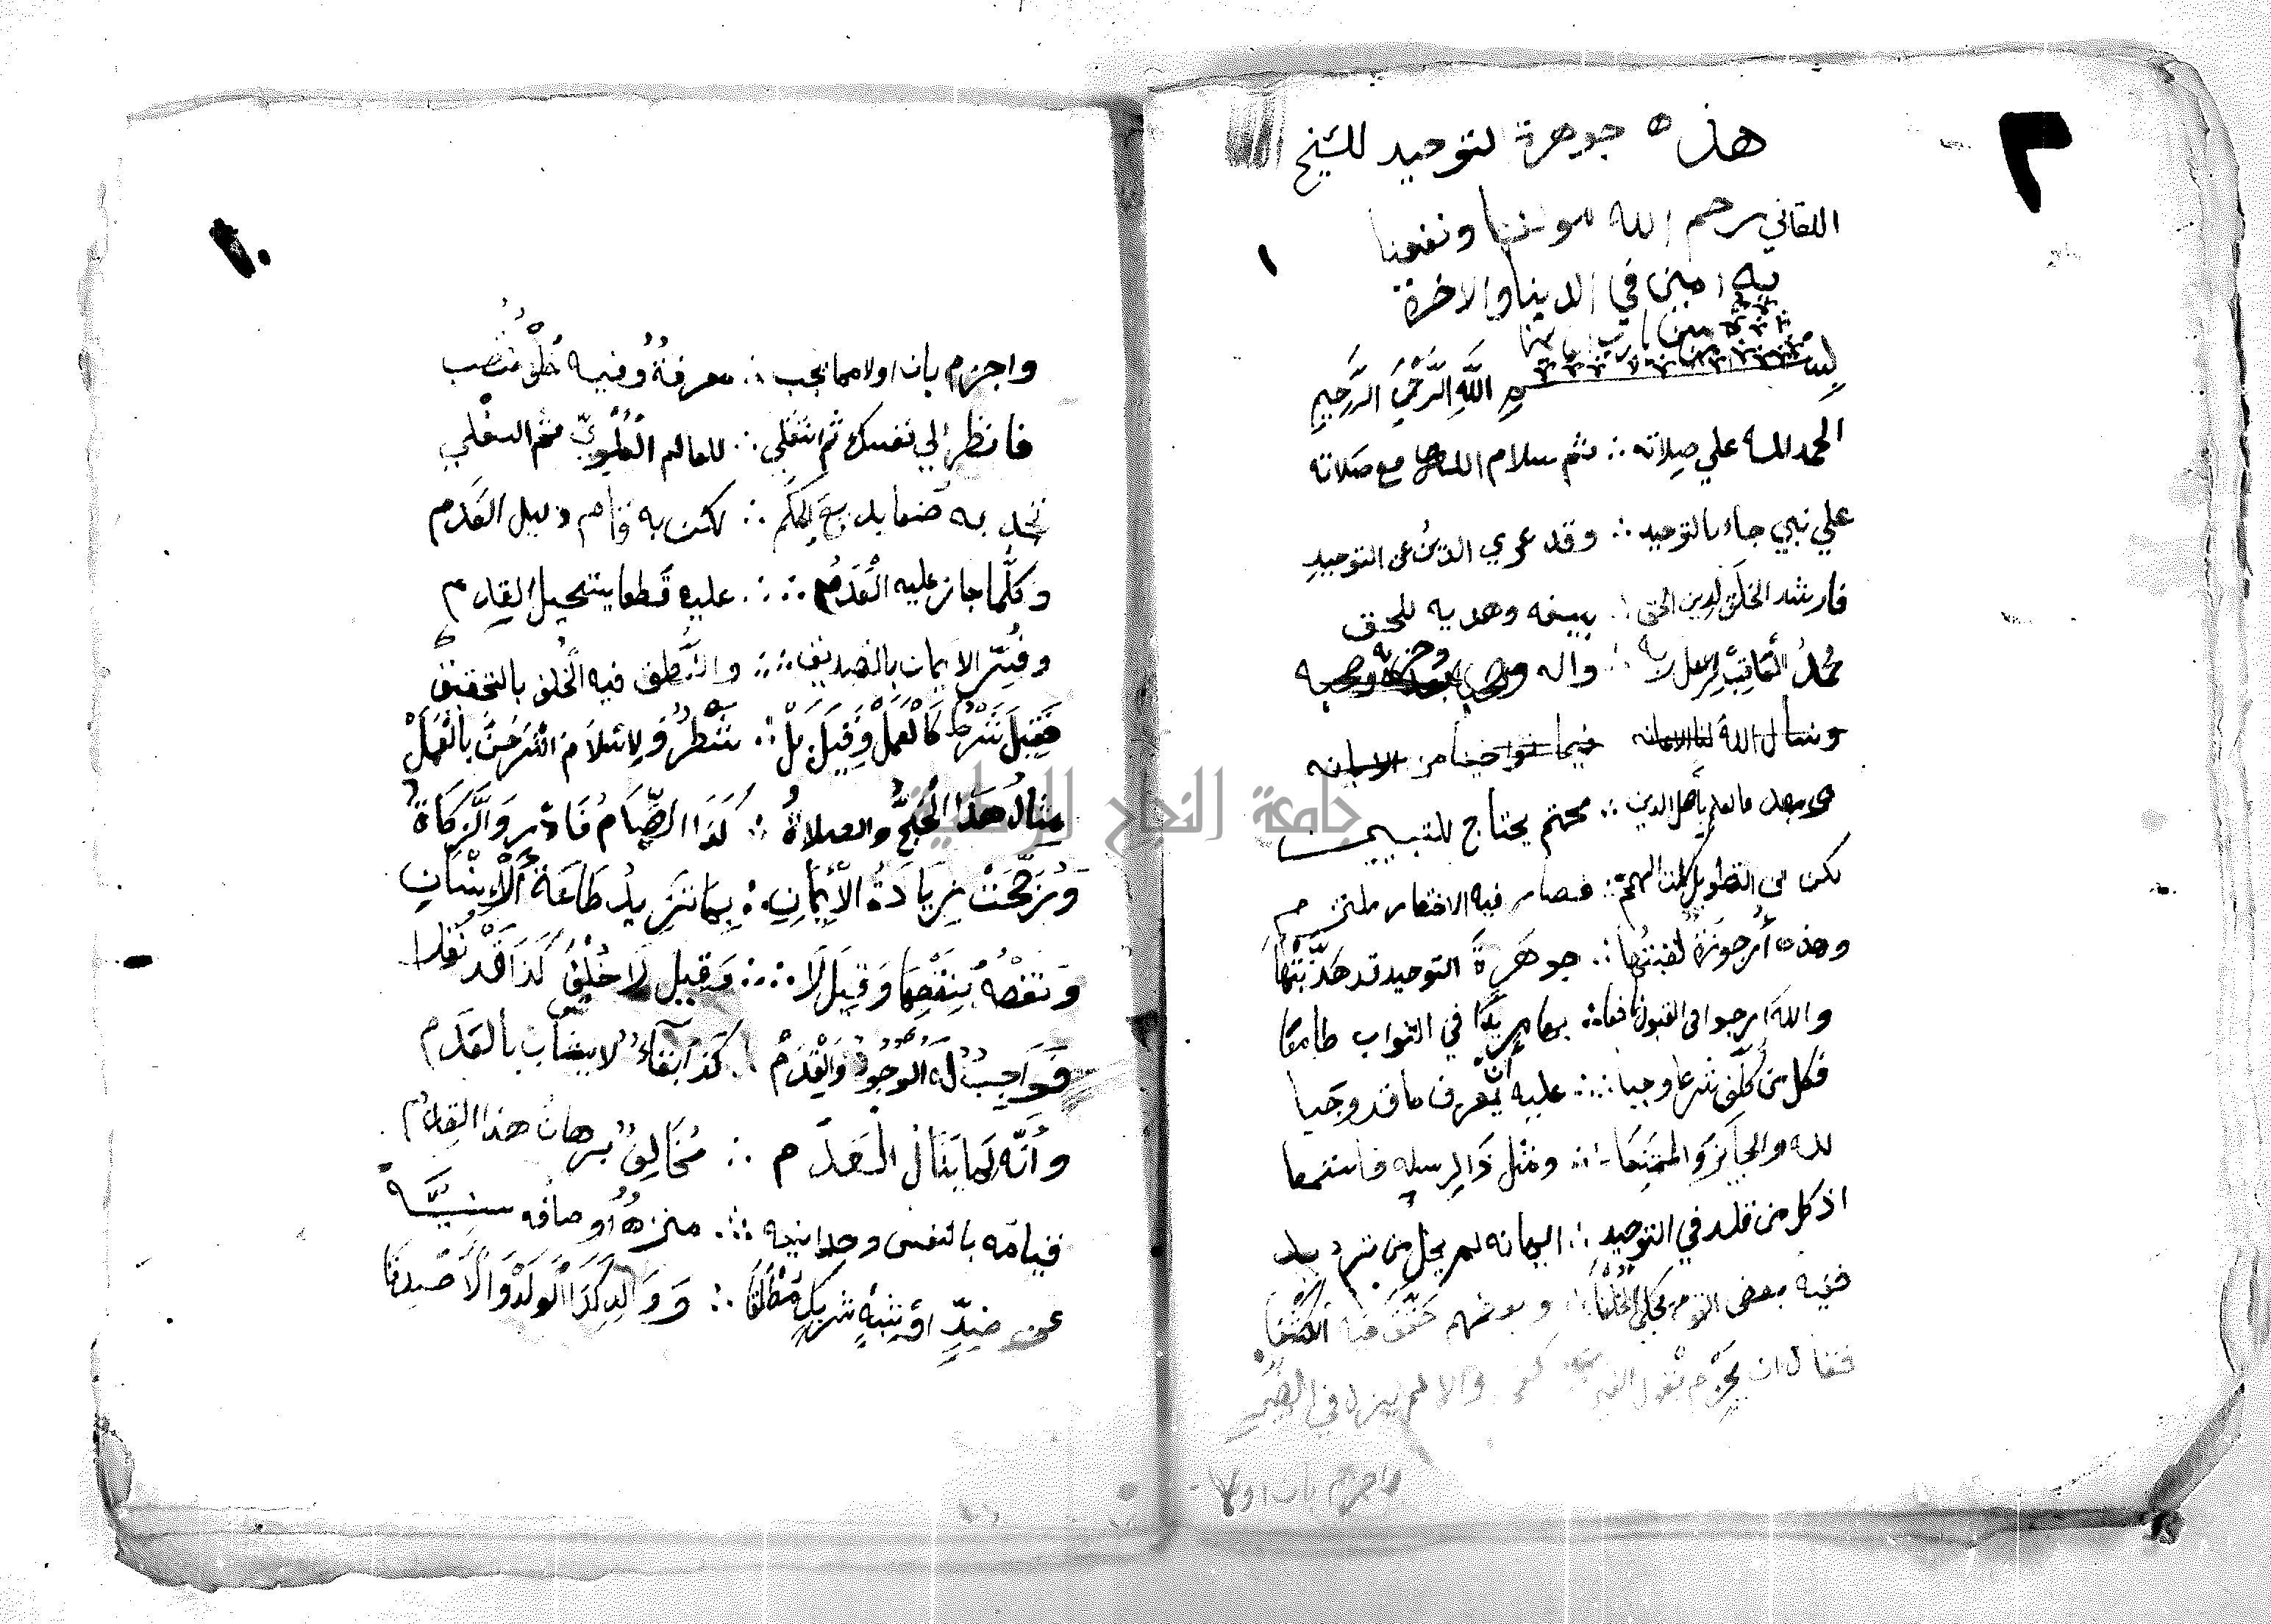 هذه جوهرة لتوحيد للشيخ
اللقاني رحم الله مولفنا ونفعنا
به امين في الدينا والاخرة
بسم الله الرَّحْمَنِ الرَّحِيمِ
الحمد لله علي صِلاته ∴ ثم سلام الله مع صَلاته
علي نبي جاء بالتوحيد ∴ وقد عري الدينُ عن التوحيدِ
فارشد الخلق لدين الحق ∴ بسيفه وهديه للحق
محمدُ العاقِبُ لرسل ربه ∴ واله وصحبه وحزبه
ونسأل الله لنا الاعانه فيما توخينا من الابانه
وبعد فالعلم بأصل الدين ∴ محتم يحتاج للتبيين
لكن من التطويل كلت الهمم ∴ فصار فيه الاختصار ملتزم
وهذه أُرجوزة لقبتُها ∴ جوهرةَ التوحيد قد هَذَّبْتُها
واللهَ ارجوا في القبول نافعا ∴ بها مريدًا في الثواب طامعًا
فكل من كُلِّف شرعا وجبا ∴ عليه أن يَعرف ما قد وجبا
لله والجائز والممتنِعَا ∴ ومثل ذا لرسله فاستمعا
اذ كل من قلد في التوحيد ∴ ايمانه لم يخل من ترديد
ففيه بعض القوم يحكي الخُلْفَا ∴ وبعضهم حَقَّقَ فيه الكَشْفَا
فقال ان يَجْزم بقول الغير كفي والا لم يزل في الضير
واجزم بان اولا
واجزم بان اولا مما يجب ∴ معرفةُ وفيه خُلْفٌ مُنتصب
فانظر الي نفسك ثم انتقلي ∴ للعالم العُلْويّ ثم السفلي
تجد به صنعا بديع الحِكَم ∴ لكن به قام دليل العَدم
وكلَّما جاز عليه الْعَدَمُ ∴ عليه قطعا يستحيل القِدم
وفُسِّر الايمان بالتصديق ∴ والنُّطق فيه الخُلف بالتحقيق
فَقِيلَ شَرْطٌ كَالْعَمَلْ وَقِيلَ بَلْ ∴ شَطْرٌ وَلاِسْلاَمَ اشْرَحَنَّ بالْعَمَلْ
مِثالُ هَذَا الْحَجُّ والصلاةُ ∴ كَذَا الصِّيَامُ فَادْرِ وَالزَّكَاةُ
وَرُجِّحَتْ زِيَادَةُ الْأيمَانِ ∴ بِمَا تَزِيدُ طَاعَةُ الْإِنْسَانِ
وَنقْصُهُ بِنَقْصِهَا وَقِيلَ لَا ∴ وَقِيلَ لَا خُلْفٌ كَذَا قَدْ نُقِلا
فَوَاجِبٌ لَهُ الْوُجُودُ وَالْقِدَمْ ∴ كَذَا بَقَاءٌ لا يشاب بالعَدَم
وَأَنَّهُ لِمَا يَنَال الْعَدَم ∴ مُخَالِفٌ برهان هذا القِدم
قيامُه بالنفس وحدانيه ∴ منزهٌ اوصافُه سنيَّه
عن ضِدٍّ اوْ شِبْهٍ شريكٍ مُطْلَقَا ∴ وَوَالِدٍ كَذَا الْوَلَدْ وَالْأَصْدِقَا
جامعة النجاح الوطنية